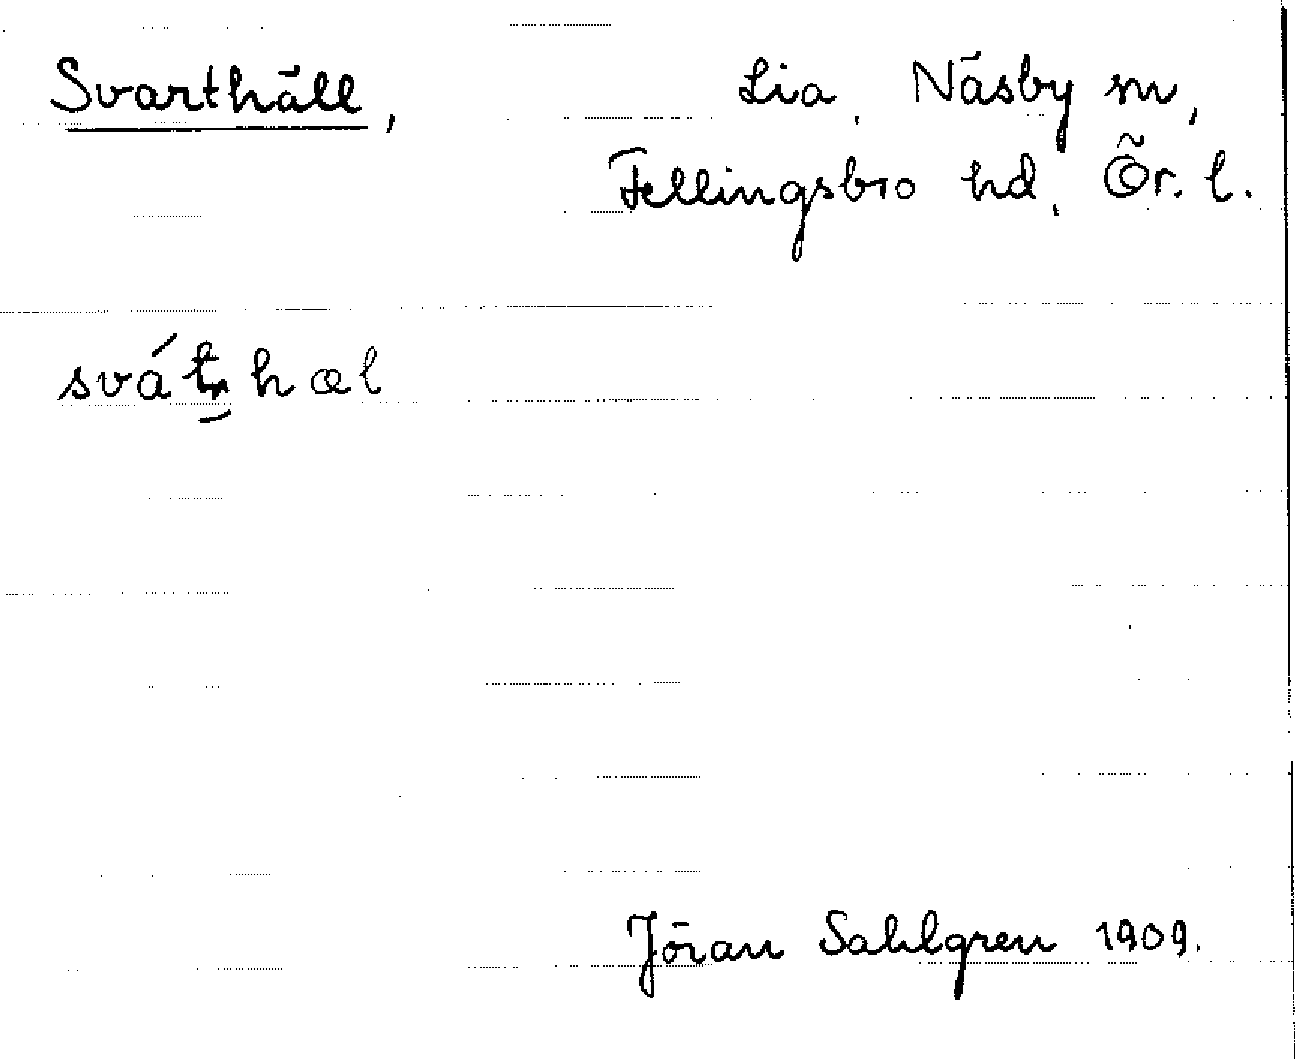 Svarthäll, Lia, Näsby sn,
Fellingsbro hd, Ör. l.
sváṭhæl
Jöran Sahlgren 1909.